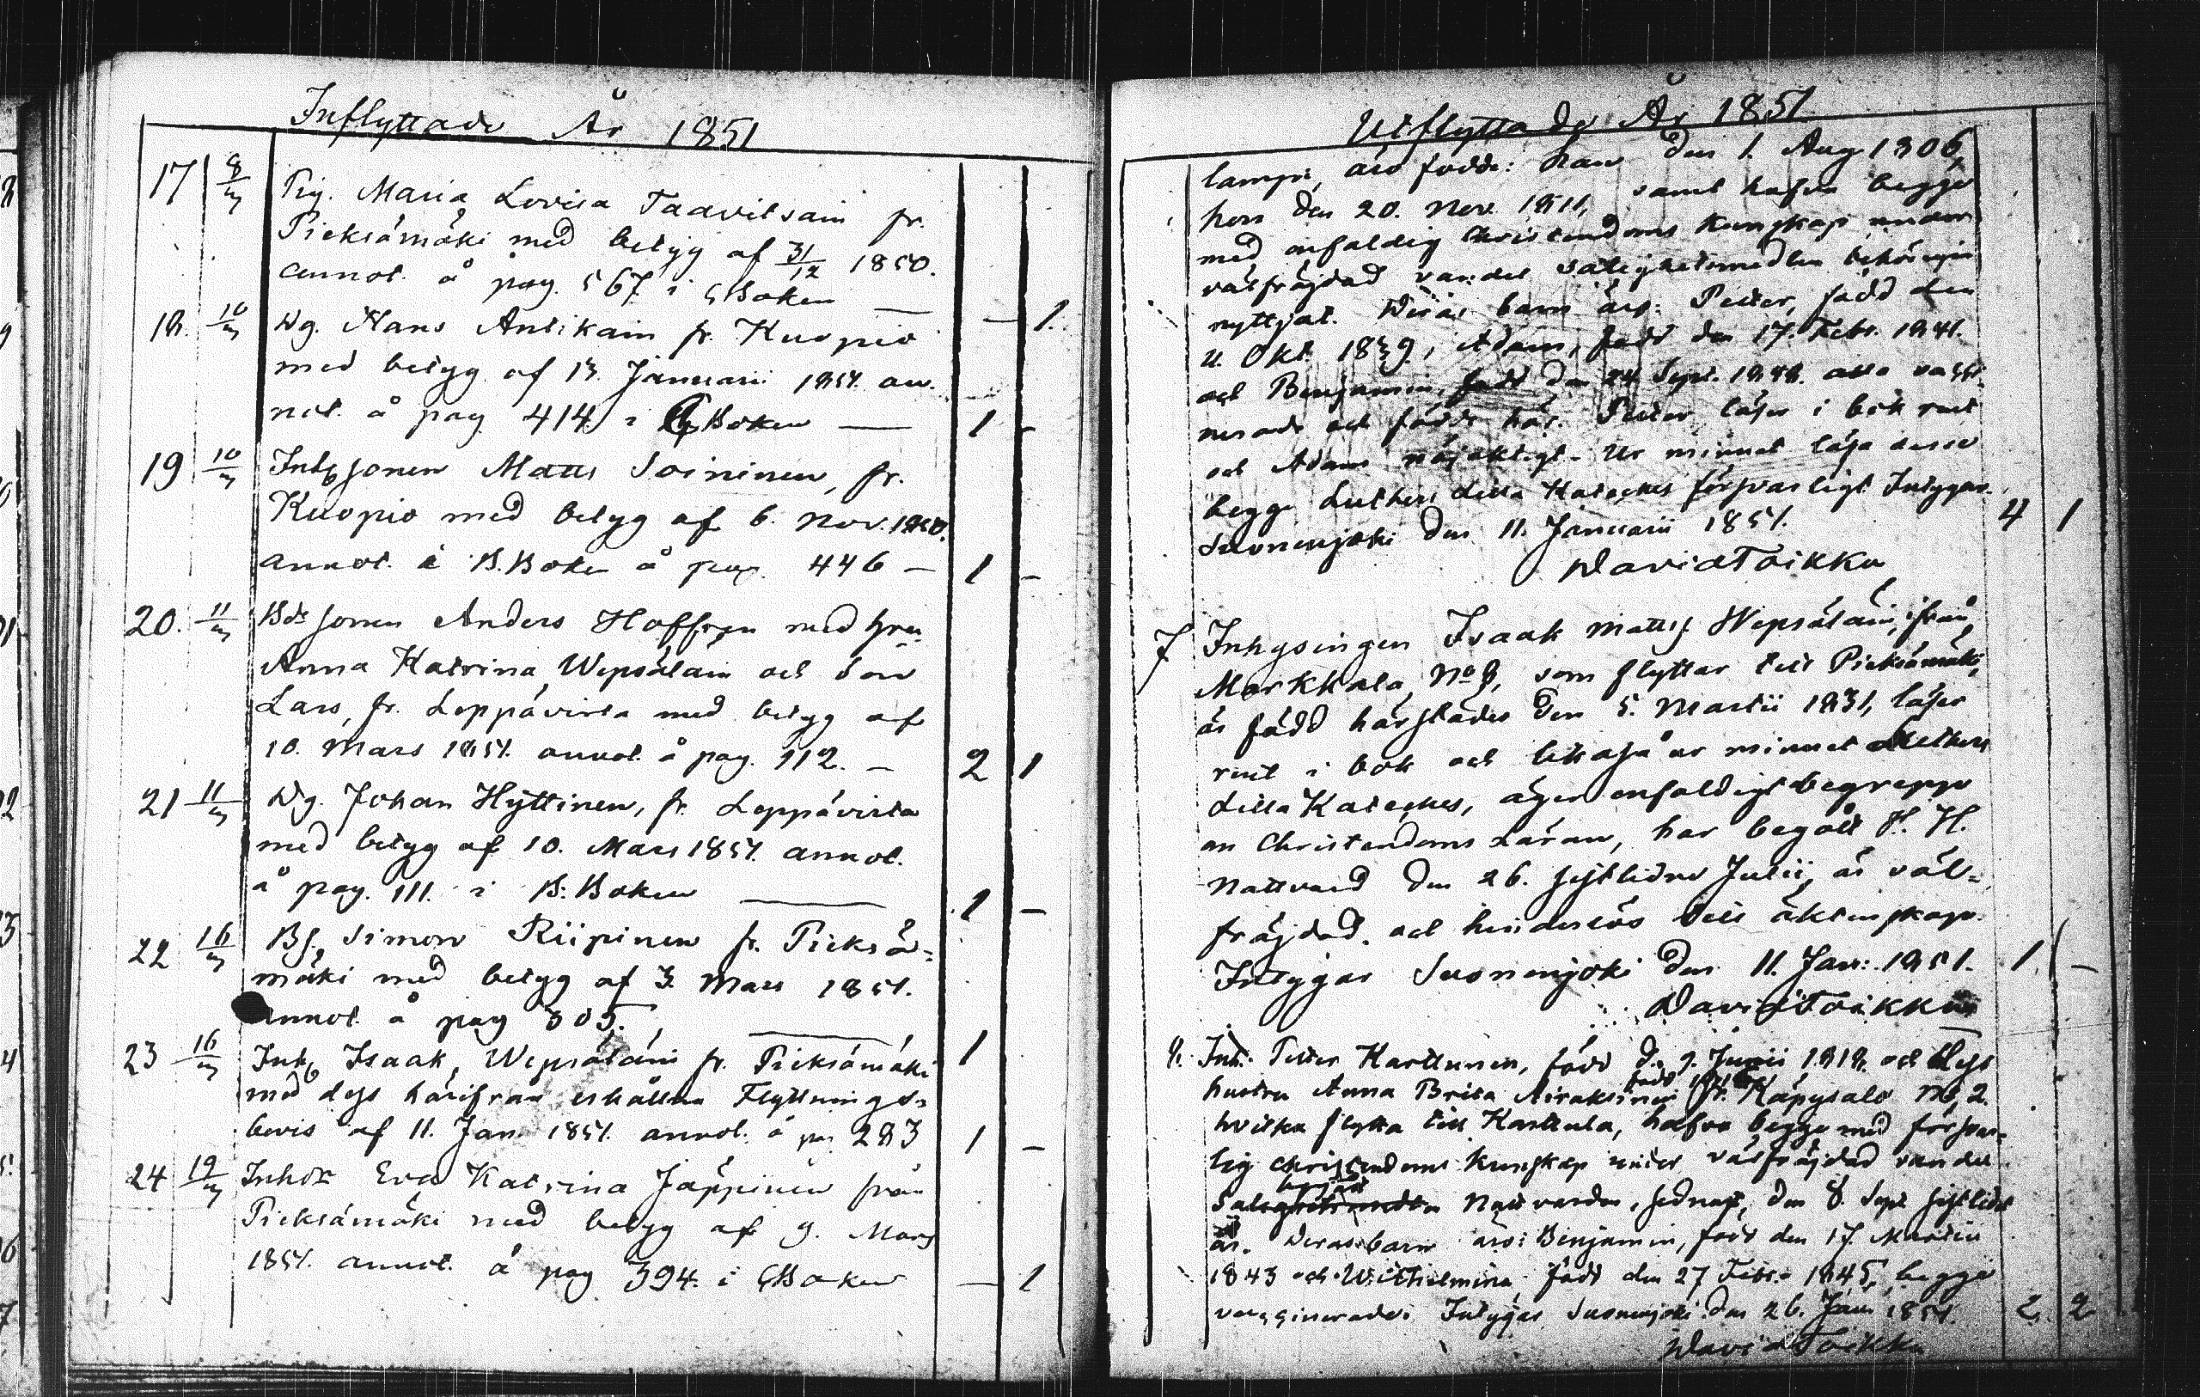 Inflyttade År 1851
17 8/3 Pig. Maria Lovisa Taavitsain fr.
Pieksämäki med betyg af 31/12 1850.
annot. å pag. 567 i Boken — — 1.
18. 10/3 Dg. Hans Antikain fr. Kuopio
med betyg af 13. Januarii 1851. an-
not. å pag 414 i Boken — 1 -
19 10/3 Inh sonen Matts Soininen, fr.
Kuopio med betyg af 6. Nov. 1850.
annot. i B. Boken å pag. 446 — 1 -
20. 11/3 Bde sonen Anders Hoffren med hru
Anna Katrina Wepsäläin och son
Lars, fr. Leppävirta med betyg af
10. Mars 1851. annot. å pag. 112. — 2 1
21 11/3 Dg. Johan Hyttinen, fr. Leppävirta
med betyg af 10. Mars 1851. annot.
å pag. 111. i B. Boken — 1 —
22 16/3 Bf. Simon Riipinen fr. Pieksä=
mäki med betyg af 3. Mars 1851.
annot. å pag 305. — 1
23 16/3 Inh Isaak Wepsäläin fr. Pieksämäki
med dess härifrån erhållna Flyttnings=
bevis af 11. Jan. 1851. annot. å pag 283 1 —
24 19/3 Inhor Eva Katrina Jäppinen från
Pieksämäki med betyg af 9. Mars
1851. annot. å pag 394. i Boken — 1
Utflyttade År 1851.
lampi, äro födde: han den 1. Aug 1806,
hon den 20. Nov. 1811, samt hafva begge
med enfaldig Christendoms kunskap under
välfräjdad vandel salighetsmedlen behörigen
nyttjat. Deras barn äro: Petter, född den
11. Okt. 1839, Adam, född den 17. Febr. 1841.
och Benjamin, född den 24 Sept. 1848. alla vacci-
nerade och födde här. Petter läser i bok rent
och Adam nöjaktigt. Ur minnet läsa desse
begge Lutheri Lilla Kateches försvarligt. Intygar.
Suonenjoki den 11. Januarii 1851. 4 1
David Toikka
7 Inhysingen Isaak Mattss. Wepsäläin, ifrån
Markkala No 9, som flyttar till Pieksämäki,
är född härstädes den 5. Martii 1831, läser
rent i bok och likaså ur minnet Lutheri
Lilla Kateches, äger enfaldigt begrepp
om Christendoms Läran, har begått H. H.
Nattvard den 26. sistlidne Julii, är väl=
fräjdad och hinderlös till äktenskap.
Intygar Suonenjoki den 11. Jan: 1851. 1. —
David Toikka
8. Inh. Petter Karttunen, född d. 9. Junii 1818. och dess
hustru Anna Brita Airaksinen född fr. Käpysalo No 2.
hvilka flytta till Karttula, hafva begge med försvar=
lig christendoms kunskap under välfräjdad vandel
begått
Nattvarden, sednast den 8. Sept. sistlidet
år. Deras barn äro: Benjamin, född den 17. Martii
1843 och Wilhelmina, född den 27 Febr. 1845, begge
vaccinerade. Intygar Suonenjoki den 26. Jan. 1851. 2. 2
David Toikka